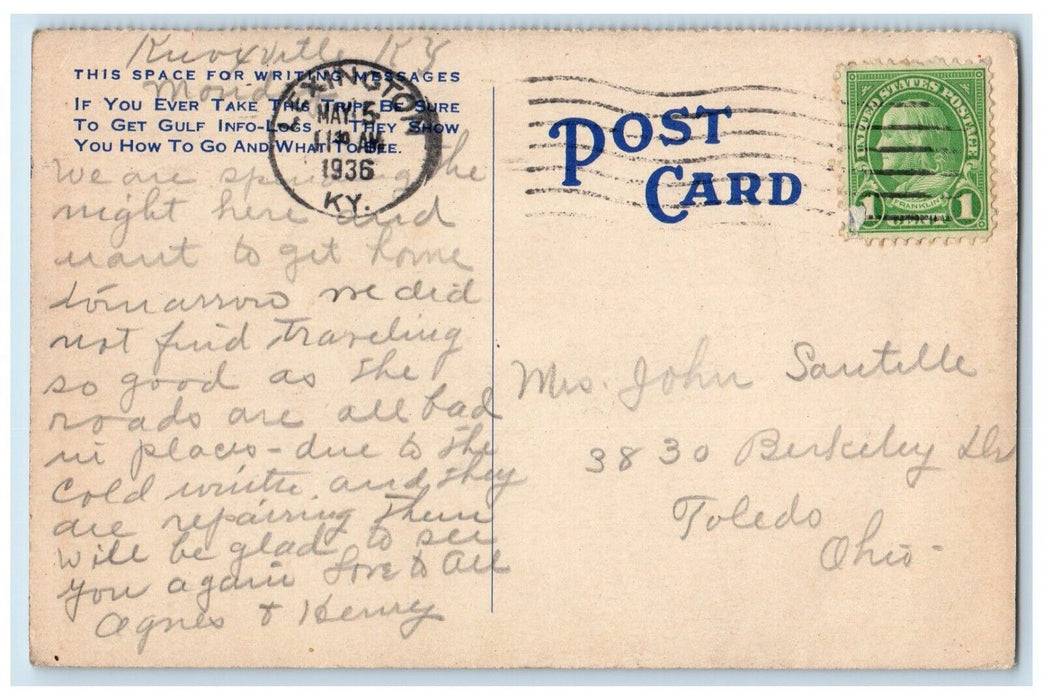 Knoxville Ky
THIS SPACE FOR WRITING MESSAGES
Monday
IF YOU EVER TAKE THIS TRIP, BE SURE
TO GET GULF INFO-LOGS. THEY SHOW
YOU HOW TO GO AND WHAT TO SEE.
We are spending the
night here and
want to get home
tomarrow we did
not find traveling
so good as the
roads are all bad
in places - due to the
cold winter and they
are repairing them
will be glad to see
you again Love to all
Agnes & Henry
LEXINGTON
MAY 5
11 30 AM
1936
KY.
POST
CARD
UNITED STATES POSTAGE
FRANKLIN
1 CENT 1
Mrs. John Santelle
3830 Berkeley Dr
Toledo
Ohio-